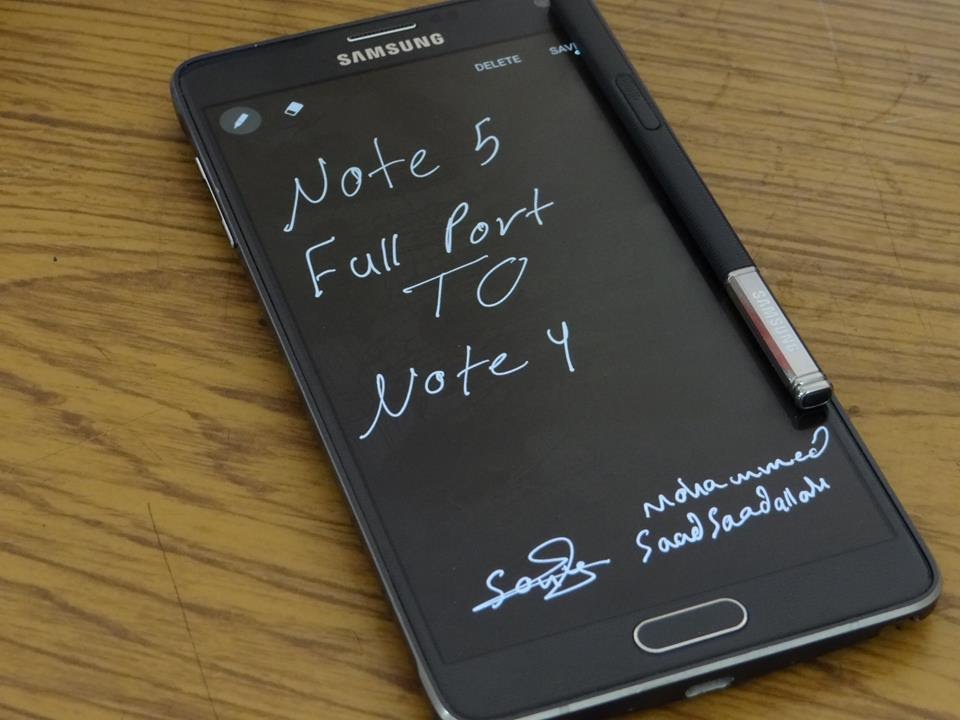 SAMSUNG
DELETE
Note 5
Full Port
TO
Note 4
SAMSUNG
Mohammed
Saad Saadallah